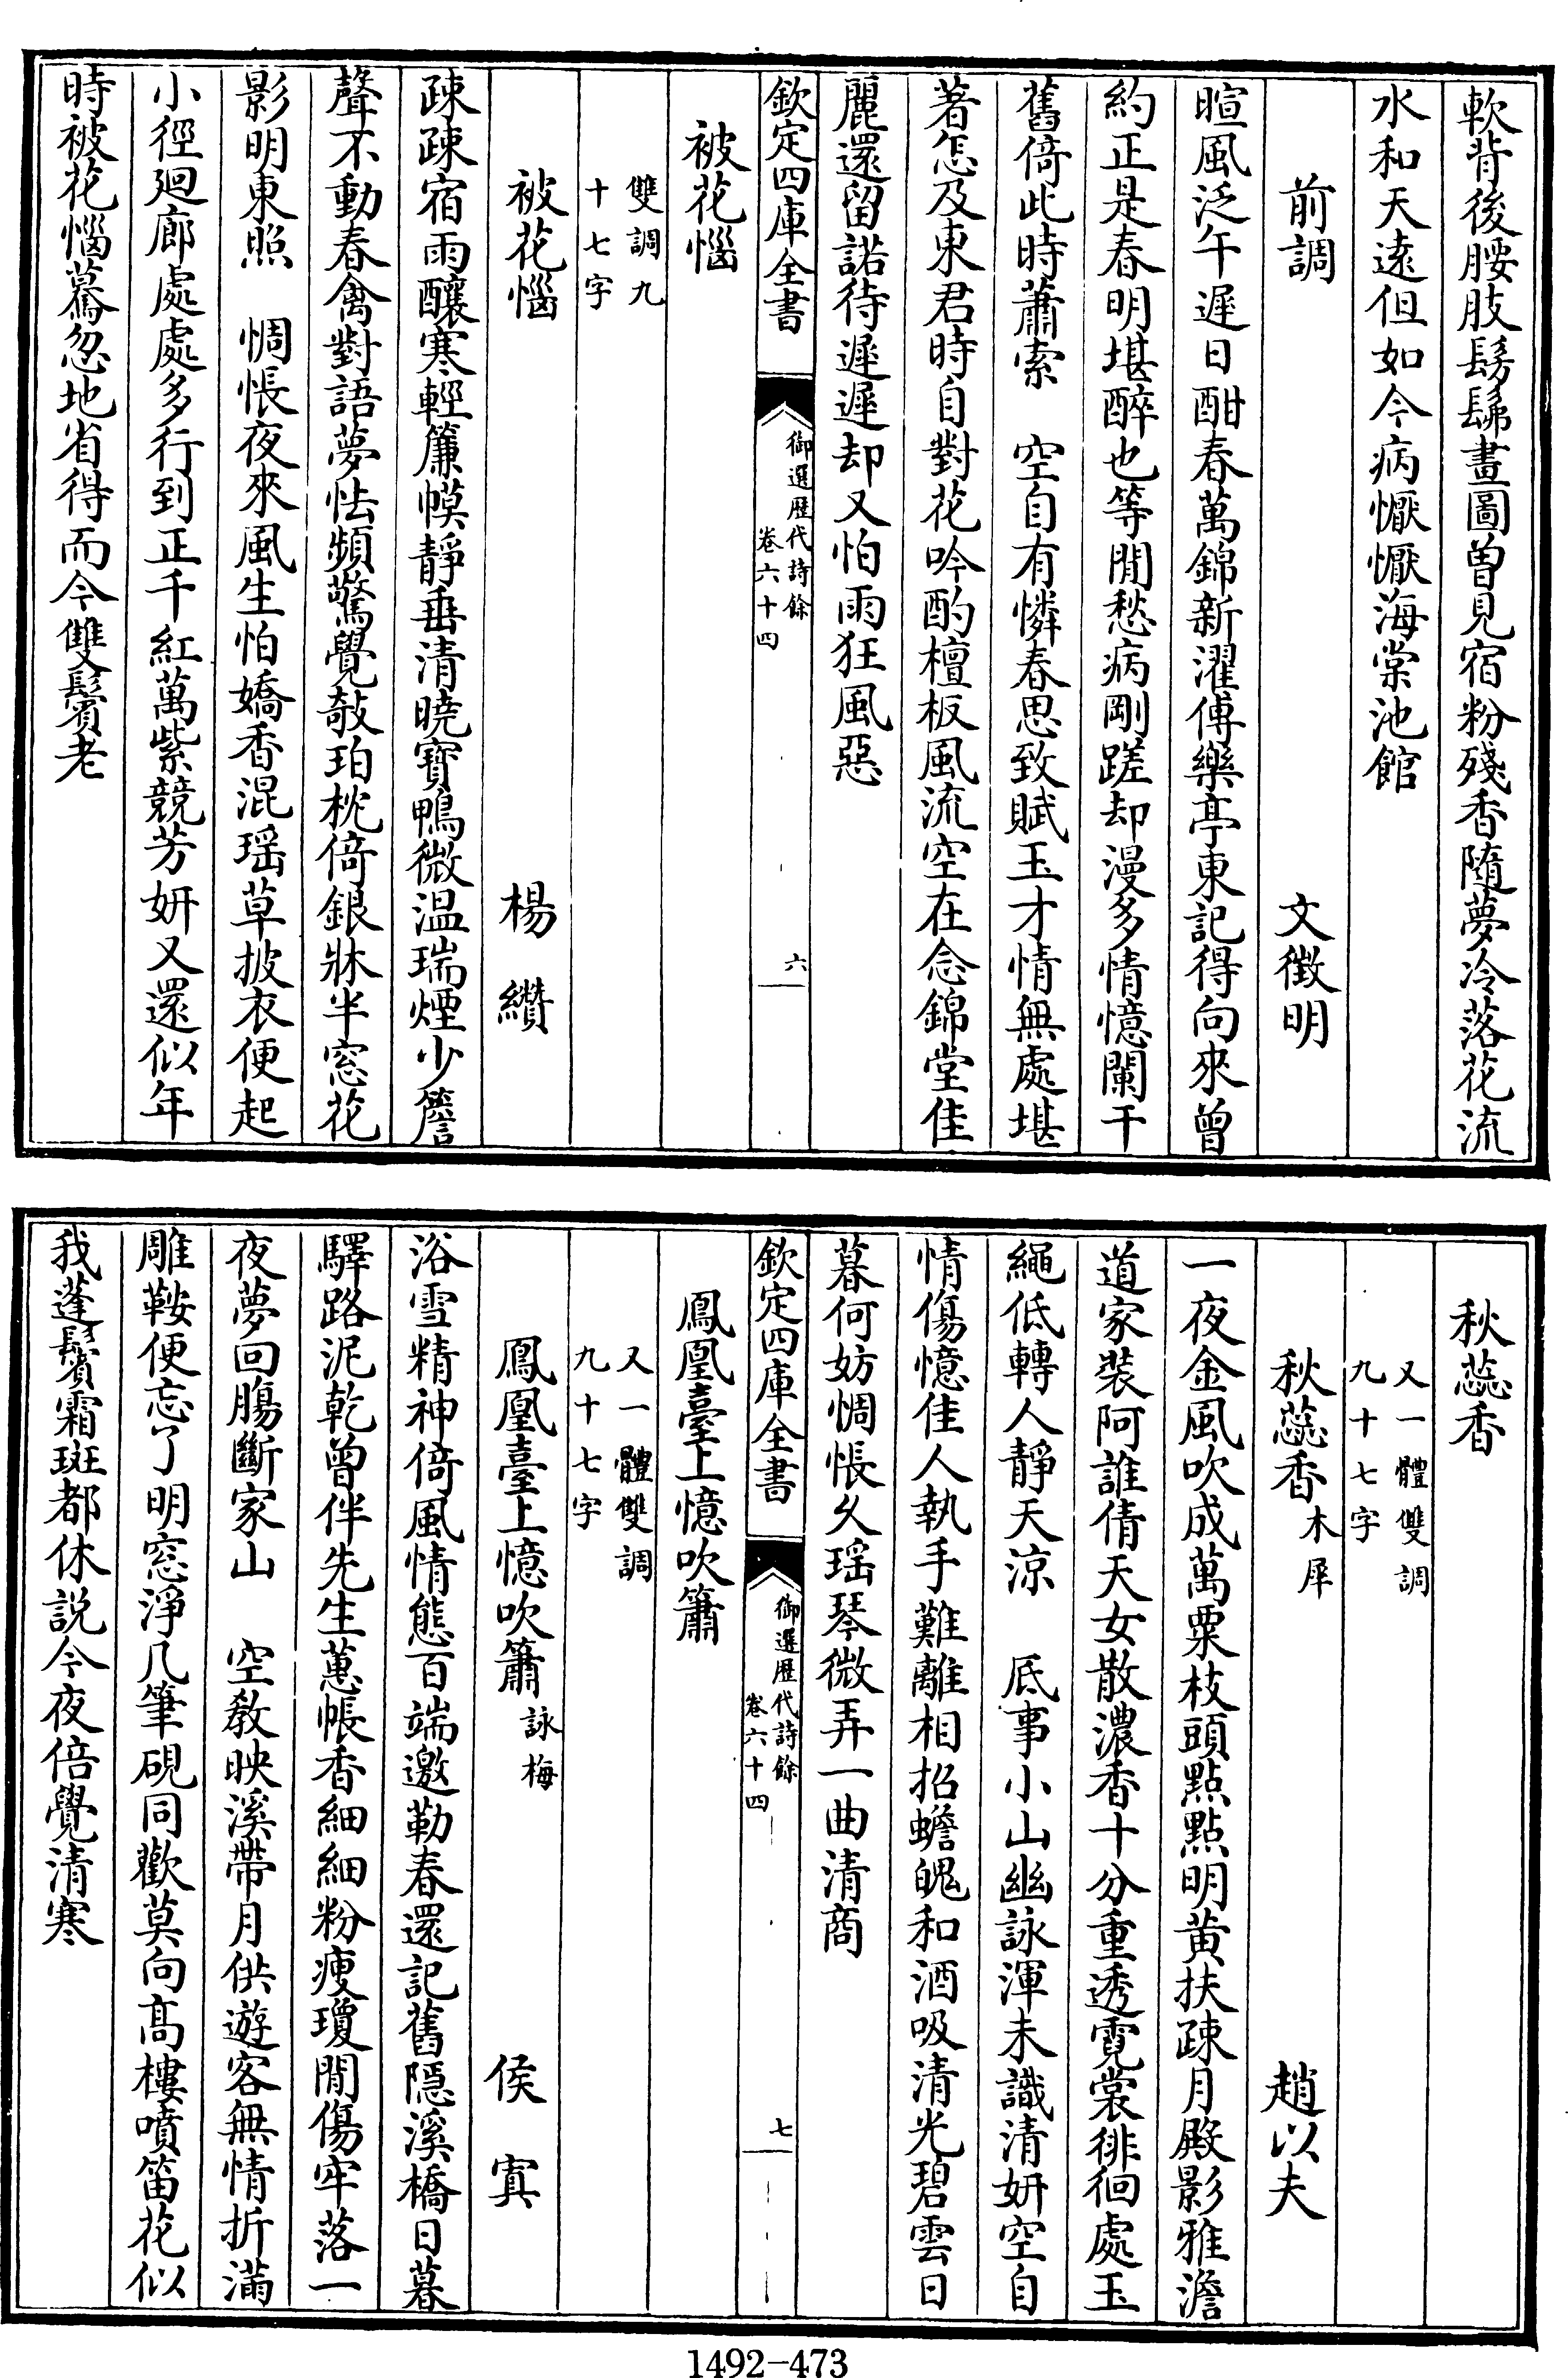 軟背後腰肢髣髴畫圖曽見宿粉殘香隨夢冷落花流
水和天遠但如今病懨懨海棠池館
前調
文徴明
暄風泛午遲日酣春萬錦新濯傅樂亭東記得向來曾
約正是春明堪醉也等閒愁病剛蹉却漫多情憶闌干
舊倚此時蕭索　空自有憐春思致賦玉才情無處堪
著怎及東君時自對花吟酌檀板風流空在念錦堂佳
麗還留諾待遲遲却又怕雨狂風惡
欽定四庫全書
御選歴代詩餘
卷六十四
六
被花惱
雙調九
十七字
被花惱
楊　纘
疎疎宿雨釀寒輕簾幙靜垂清曉寶鴨微温瑞煙少簷
聲不動春禽對語夢怯頻驚覺敧珀枕倚銀牀半窓花
影明東照　惆悵夜來風生怕嬌香混瑶草披衣便起
小徑廻廊處處多行到正千紅萬紫競芳妍又還似年
時被花惱驀忽地省得而今雙鬢老
秋蕊香
又一體雙調
九十七字
秋蕊香
木犀
趙以夫
一夜金風吹成萬粟枝頭點點明黄扶疎月殿影雅澹
道家裝阿誰倩天女散濃香十分重透霓裳徘徊處玉
繩低轉人靜天凉　底事小山幽詠渾未識清妍空自
情傷憶佳人執手難離相招蟾魄和酒吸清光碧雲日
暮何妨惆悵久瑶琴微弄一曲清商
欽定四庫全書
御選歴代詩餘
卷六十四
七
鳳凰臺上憶吹簫
又一體雙調
九十七字
鳳凰臺上憶吹簫
詠梅
侯　寘
浴雪精神倚風情態百端邀勒春還記舊隠溪橋日暮
驛路泥乾曽伴先生蕙帳香細細粉瘦瓊閒傷牢落一
夜夢回腸斷家山　空教映溪帶月供遊客無情折滿
雕鞍便忘了明窓淨几筆硯同歡莫向髙樓噴笛花似
我蓬鬢霜斑都休説今夜倍覺清寒
1492-473